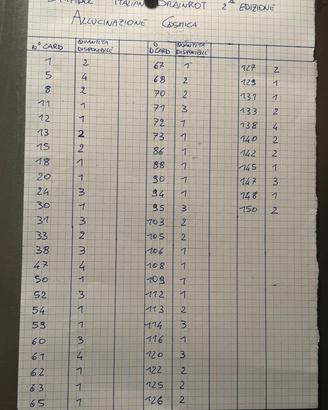 ITALIAN BRAINROT 2ª EDIZIONE
ALLUCINAZIONE COSMICA
N° CARD QUANTITÀ DISPONIBILE N° CARD QUANTITÀ DISPONIBILE
1 2 67 1 127 2
5 4 68 2 129 1
8 2 70 2 131 1
11 1 71 3 133 2
12 1 72 1 138 4
13 2 73 1 140 2
15 2 86 1 142 2
18 1 88 1 145 1
20 1 90 1 147 3
24 3 94 1 148 1
30 1 95 3 150 2
31 3 103 2
33 2 105 2
38 3 106 1
47 4 108 1
50 1 109 1
52 3 112 1
54 1 113 2
59 1 114 3
60 3 116 1
61 4 120 3
62 1 122 2
63 1 125 2
65 1 126 2